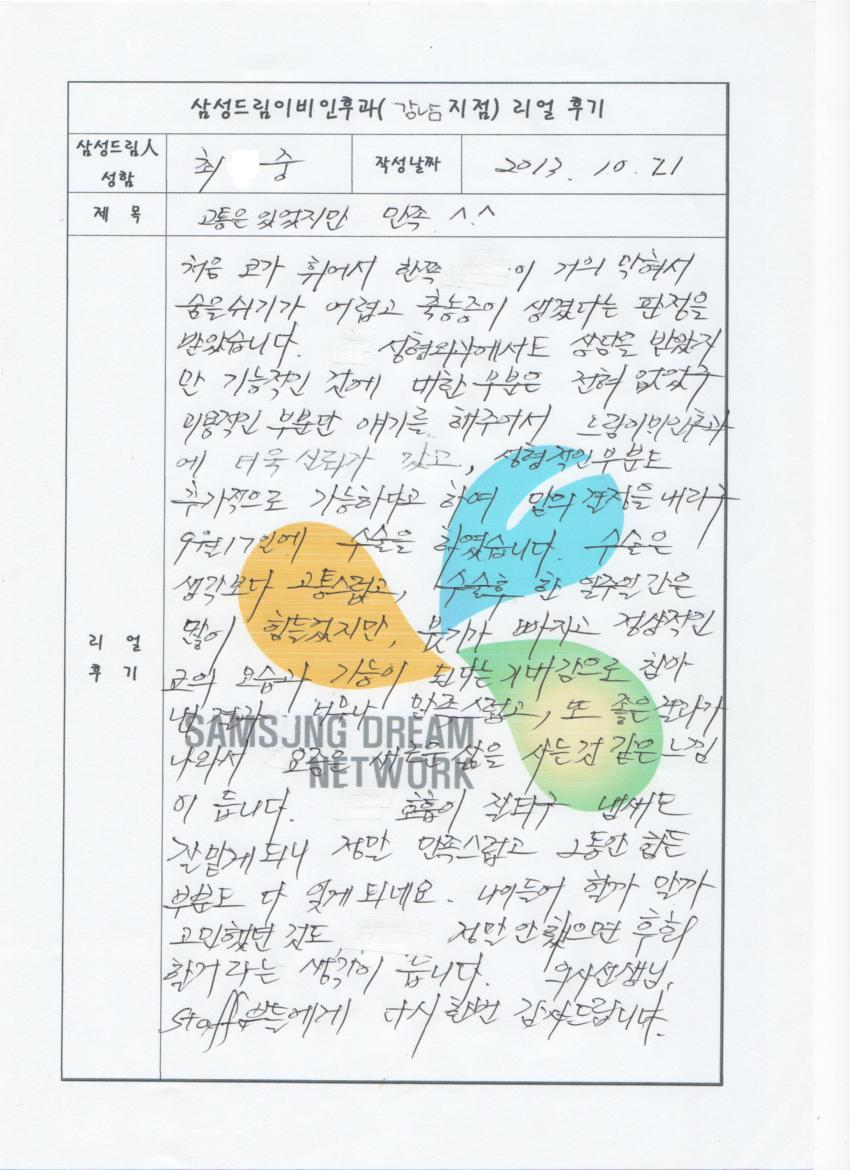 삼성드림이비인후과(강남지점) 리얼 후기
삼성드림人 성함
최 중
작성날짜
2013. 10. 21
제 목
고통은 있었지만 만족 ^.^
리 얼
후 기
처음 코가 휘어서 한쪽 이 거의 막혀서
숨을쉬기가 어렵고 축농증이 생겼다는 판정을
받았습니다. 성형외과에서도 상담을 받았지
만 기능적인 것에 대한 부분은 전혀 없었구
미용적인 부분만 얘기를 해주어서 드림이비인후과
에 더욱 신뢰가 갔고, 성형적인부분도
추가적으로 가능하다고 하여 결정을 내리구
9월17일에 수술을 하였습니다. 수술은
생각보다 고통스럽고, 수술후 한 일주일간은
많이 힘들었지만, 붓기가 빠지고 정상적인
코의 모습과 기능이 된다는 기대감으로 참아
결과 너무나 만족스럽고, 또 좋은결과가
나와서 요즘은 새로운 삶을 사는것 같은느낌
이 듭니다. 호흡이 잘되구 냄새도
잘맡게되니 정말 만족스럽고 그동안 힘든
부분도 다 잊게 되네요. 나이들어 할까 말까
고민했던 것도 정말 안했으면 후회
할거라는 생각이 듭니다. 의사선생님,
staff분들에게 다시한번 감사드립니다.
SAMSUNG DREAM
NETWORK